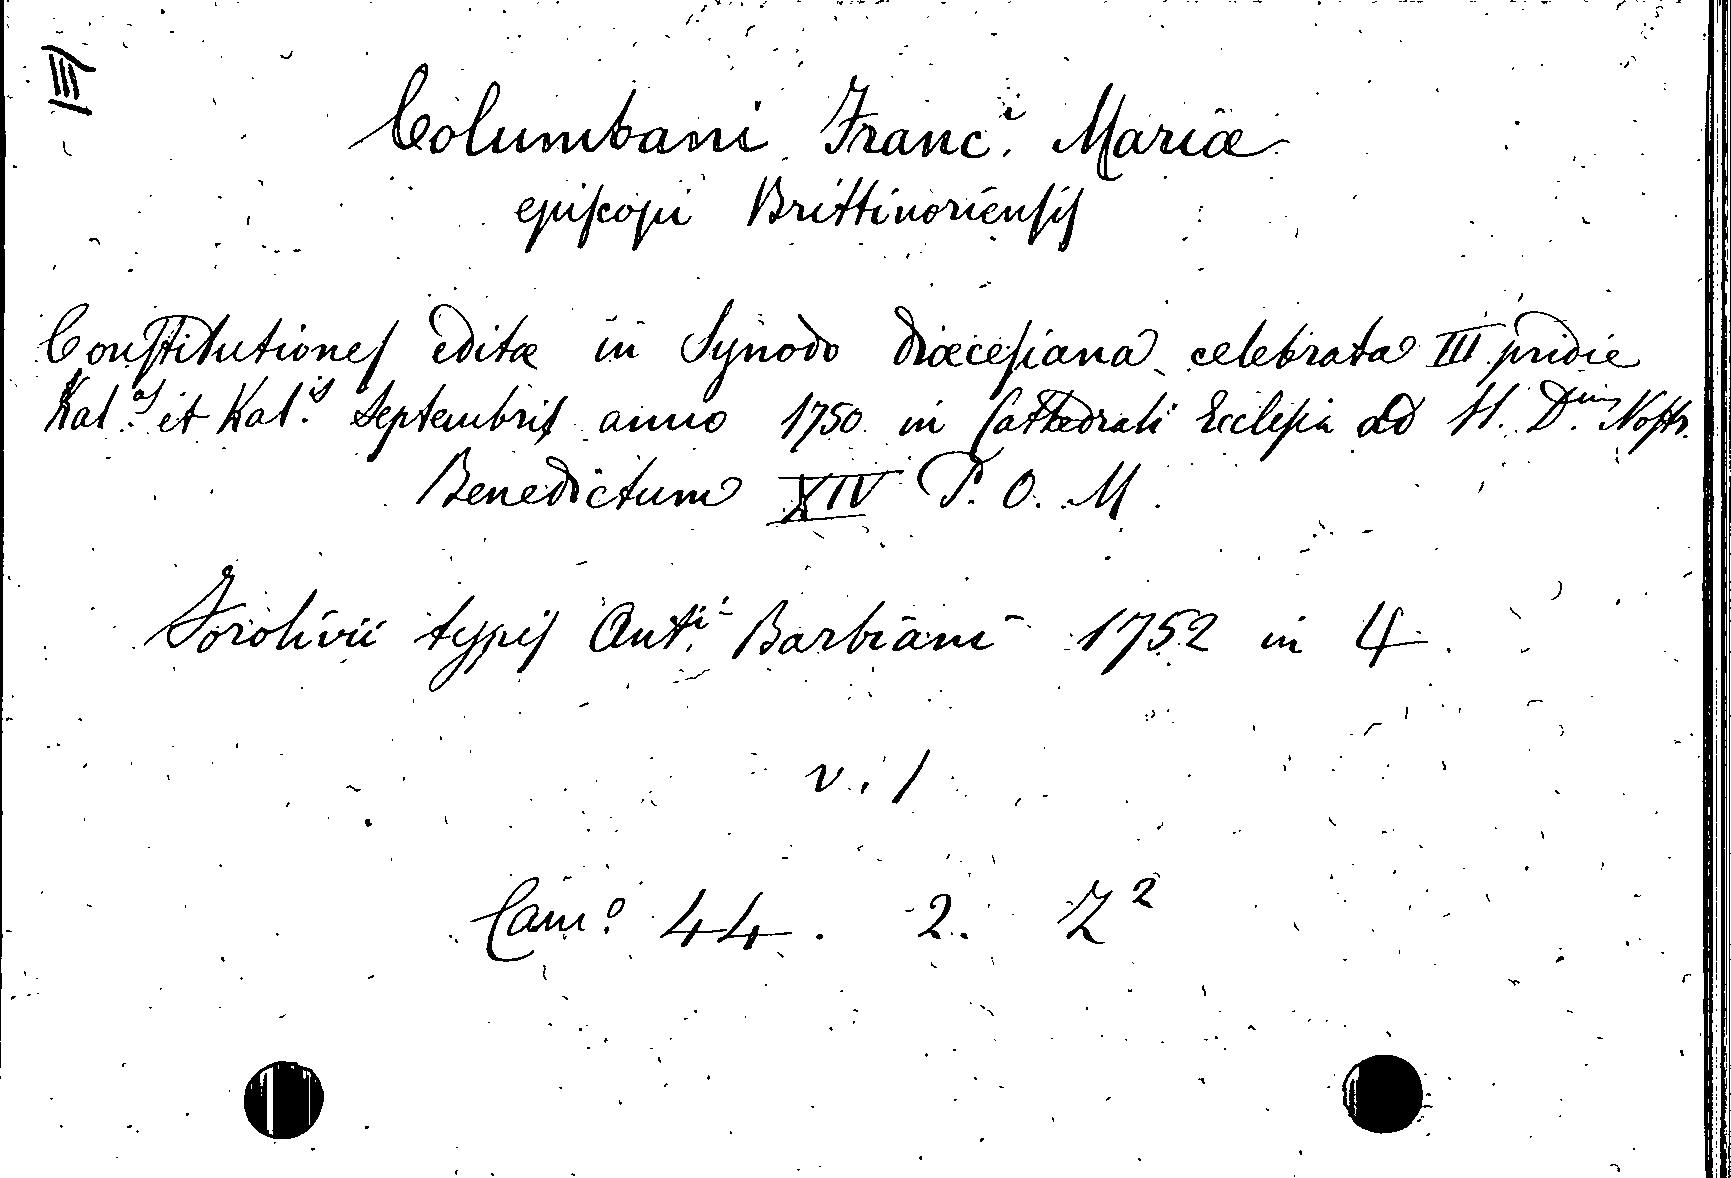 Columbani Franc.i Mariæ
episcopi Brittinoriensis
Constitutiones editæ in Synodo diœcesiana celebrata III pridie
Kal.s et Kal.is Septembris anno 1750 in Cathedrali Ecclesia ad SS. D.um Nostr.
Benedictum XIV P. O. M.
Forolivii typis Ant.i Barbiani 1752 in 4.
v. 1
Cam.o 44. 2. Z2